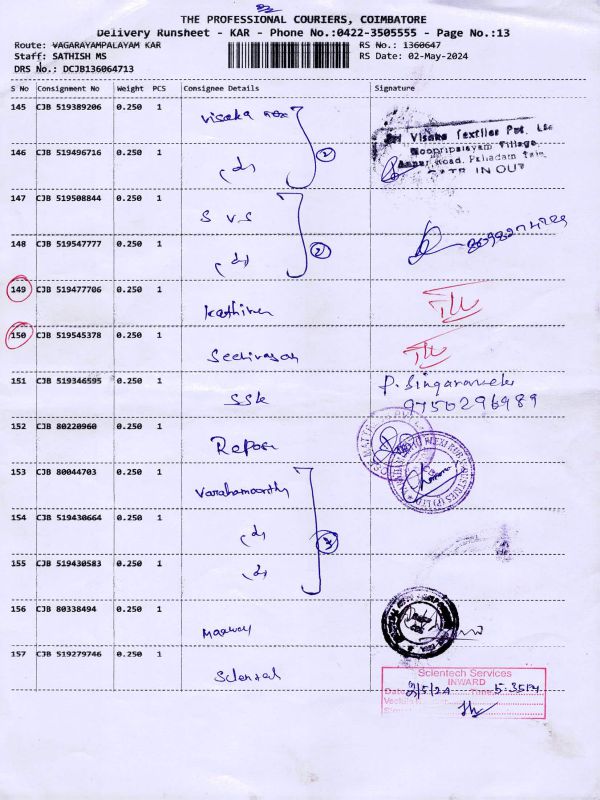 THE PROFESSIONAL COURIERS, COIMBATORE
Delivery Runsheet - KAR - Phone No.:0422-3505555 - Page No.:13
Route: VAGARAYAMPALAYAM KAR RS No.: 1360647
Staff: SATHISH MS RS Date: 02-May-2024
DRS No.: DCJB136064713
S No Consignment No Weight PCS Consignee Details Signature
145 CJB 519389206 0.250 1 Visaka
Visaka Textiles Pvt.
Village,
Road, Palladam
IN OUT
146 CJB 519496716 0.250 1
2
147 CJB 519508844 0.250 1 S V S
148 CJB 519547777 0.250 1
2
149 CJB 519477706 0.250 1 Kathiren
150 CJB 519545378 0.250 1
151 CJB 519346595 0.250 1 SSK P. Singaravel
9750296989
152 CJB 80220960 0.250 1
153 CJB 80044703 0.250 1 Varahamoorthy
154 CJB 519430664 0.250 1
3
155 CJB 519430583 0.250 1
156 CJB 80338494 0.250 1
157 CJB 519279746 0.250 1
Scientech Services
INWARD
Date 2/5/24 Time 5.35